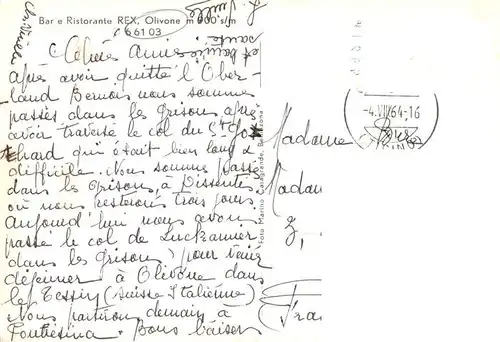 Bar e Ristorante REX, Olivone m 900 s/m
6 61 03
Chères amies
après avoir quitté l'Ober-
land Bernois nous sommes
passés dans les grisons, après
avoir traversé le col du St Got
thard qui était bien long &
difficile. Nous sommes passé
dans les Grisons, à Dissentis
où nous resterons trois jours
Aujourd'hui nous avons
passé le col de Luckmanier
dans les grisons) pour venir
déjeuner à Olivone dans
le Tessin (Suisse Italienne)
Nous partirons demain à
Pontresina. Bons baisers
et bonne
santé
Foto Marino Casagrande, Bellinzona
-4.VII.64-16
Madame
Madam
2,
Fran